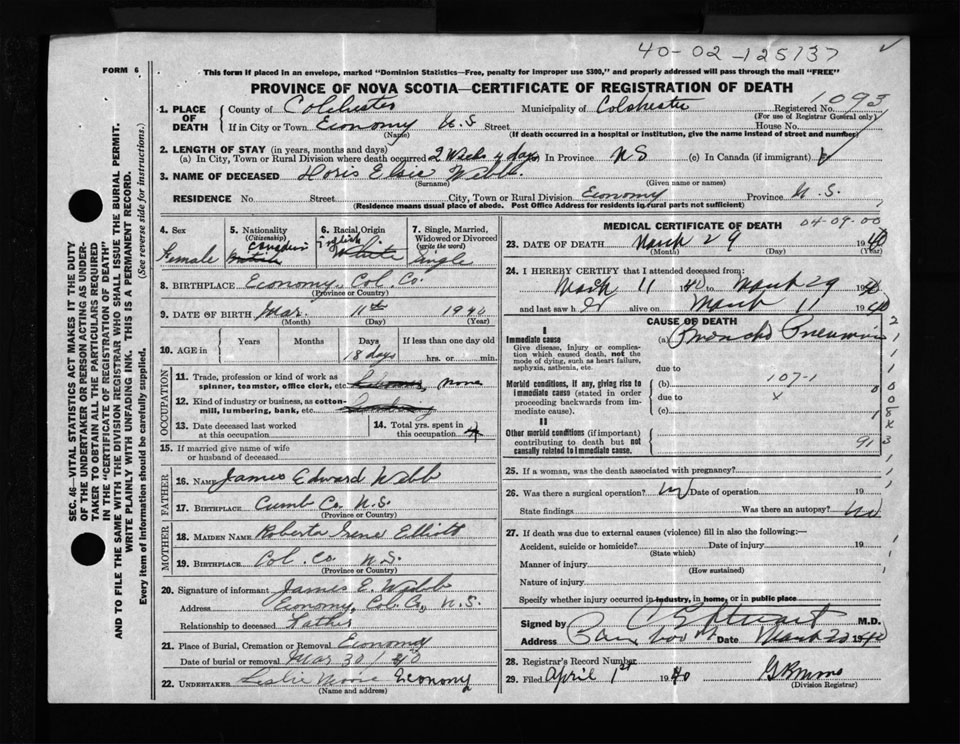 40-02-125137
FORM 6
This form if placed in an envelope, marked "Dominion Statistics—Free, penalty for improper use $300," and properly addressed will pass through the mail "FREE"
PROVINCE OF NOVA SCOTIA—CERTIFICATE OF REGISTRATION OF DEATH
1. PLACE OF DEATH County of Colchester Municipality of Colchester Registered No. 1093
(For use of Registrar General only)
If in City or Town Economy N.S. Street House No.
(Name) (If death occurred in a hospital or institution, give the name instead of street and number)
2. LENGTH OF STAY (in years, months and days)
(a) In City, Town or Rural Division where death occurred 2 weeks 4 days (b) In Province NS (c) In Canada (if immigrant)
3. NAME OF DECEASED Doris Elsie Webb
(Surname) (Given name or names)
RESIDENCE No. Street City, Town or Rural Division Economy Province N.S.
(Residence means usual place of abode. Post Office Address for residents in rural parts not sufficient)
4. Sex Female
5. Nationality (Citizenship) Canadian British
6. Racial Origin English White
7. Single, Married, Widowed or Divorced (write the word) Single
8. BIRTHPLACE Economy, Col. Co.
(Province or Country)
9. DATE OF BIRTH Mar. 11th 1940
(Month) (Day) (Year)
10. AGE in Years Months Days If less than one day old
18 days hrs. or min.
OCCUPATION
11. Trade, profession or kind of work as spinner, teamster, office clerk, etc. none
12. Kind of industry or business, as cotton-mill, lumbering, bank, etc.
13. Date deceased last worked at this occupation
14. Total yrs. spent in this occupation
15. If married give name of wife or husband of deceased
FATHER
16. Name James Edward Webb
17. BIRTHPLACE Cumb Co. N.S.
(Province or Country)
MOTHER
18. MAIDEN NAME Roberta Irene Elliott
19. BIRTHPLACE Col. Co N.S.
(Province or Country)
20. Signature of informant James E. Webb
Address Economy, Col. Co., N.S.
Relationship to deceased Father
21. Place of Burial, Cremation or Removal Economy
Date of burial or removal Mar 30/40
22. UNDERTAKER Leslie Moore Economy
(Name and address)
MEDICAL CERTIFICATE OF DEATH 04-09-00
23. DATE OF DEATH March 29 1940
(Month) (Day) (Year)
24. I HEREBY CERTIFY that I attended deceased from:
March 11 40 to March 29 1940
and last saw h alive on March 11 1940
CAUSE OF DEATH
I
Immediate cause
Give disease, injury or complication which caused death, not the mode of dying, such as heart failure, asphyxia, asthenia, etc.
(a) Broncho Pneumonia
due to
Morbid conditions, if any, giving rise to immediate cause (stated in order proceeding backwards from immediate cause).
(b) 107-1
due to x
(c)
II
Other morbid conditions (if important) contributing to death but not causally related to immediate cause.
913
25. If a woman, was the death associated with pregnancy?
26. Was there a surgical operation? No Date of operation 19
State findings Was there an autopsy? No
27. If death was due to external causes (violence) fill in also the following:—
Accident, suicide or homicide? Date of injury 19
(State which)
Manner of injury
(How sustained)
Nature of injury
Specify whether injury occurred in industry, in home, or in public place
Signed by M.D.
Address Date March 1940
28. Registrar's Record Number
29. Filed April 1st 1940
(Division Registrar)
SEC. 46—VITAL STATISTICS ACT MAKES IT THE DUTY
OF THE UNDERTAKER OR PERSON ACTING AS UNDER-
TAKER TO OBTAIN ALL THE PARTICULARS REQUIRED
IN THE "CERTIFICATE OF REGISTRATION OF DEATH"
AND TO FILE THE SAME WITH THE DIVISION REGISTRAR WHO SHALL ISSUE THE BURIAL PERMIT.
WRITE PLAINLY WITH UNFADING INK. THIS IS A PERMANENT RECORD.
Every item of information should be carefully supplied. (See reverse side for instructions.)